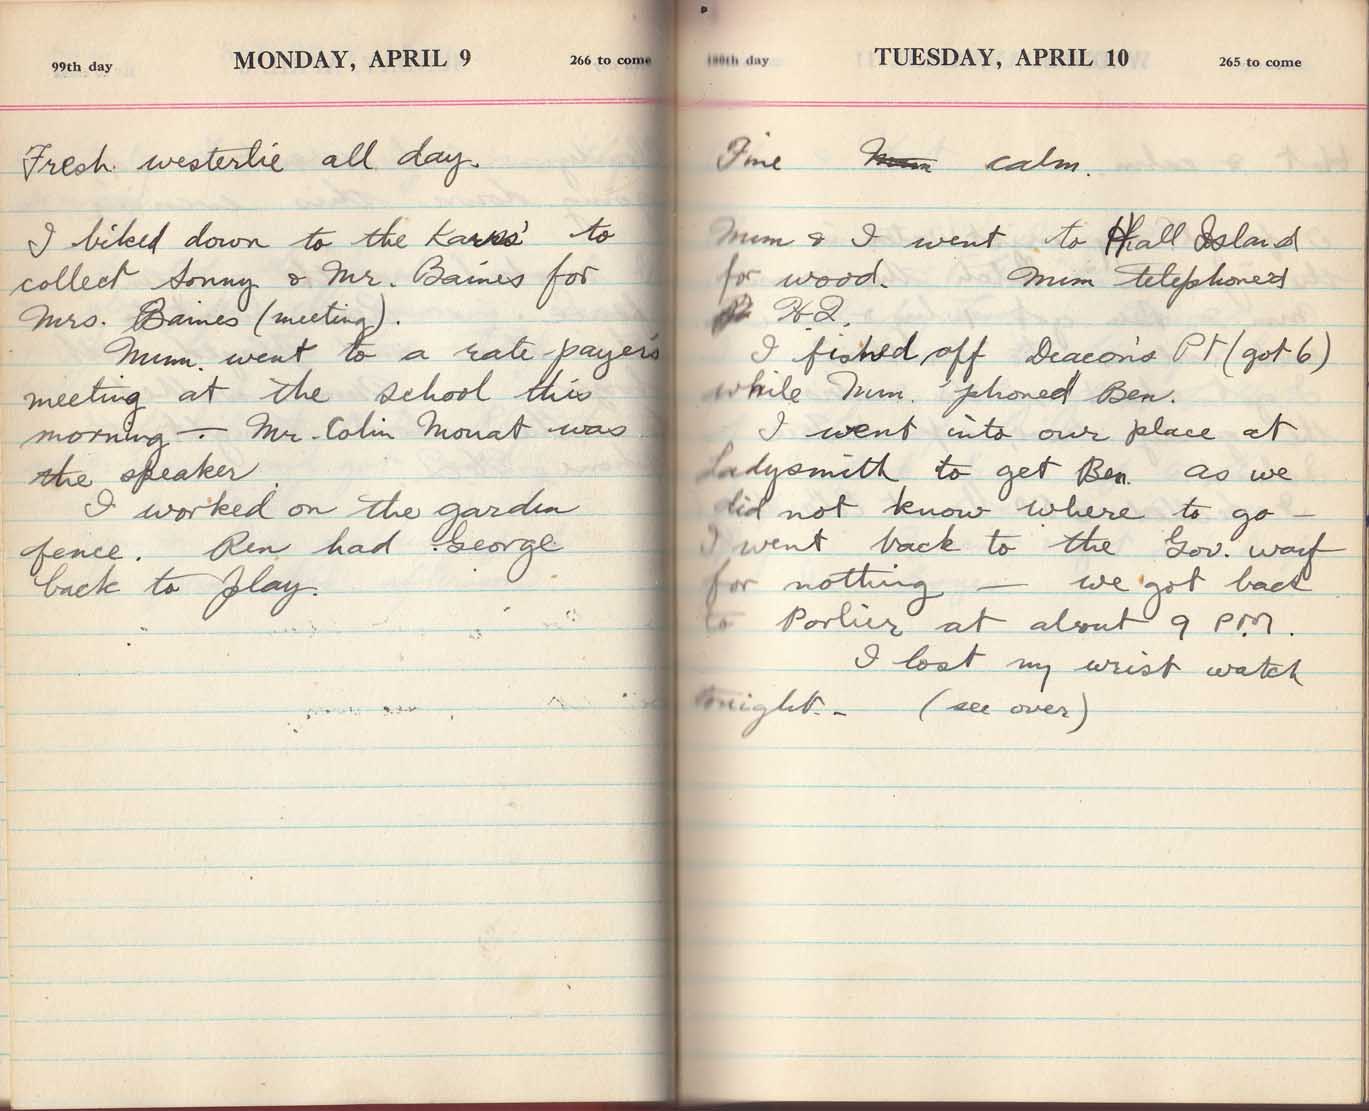 99th day MONDAY, APRIL 9 266 to come
Fresh westerlie all day.
I biked down to the to
collect Sonny & Mr. Baines for
Mrs. Baines (meeting).
Mum. went to a rate-payer's
meeting at the school this
morning — Mr. Colin Mouat was
the speaker.
I worked on the garden
fence. Ren had George
back to play.
100th day TUESDAY, APRIL 10 265 to come
Fine Mum calm.
Mum & I went to Hall Island
for wood. Mum telephoned
H.Q.
I fished off Deacon's Pt (got 6)
while Mum. 'phoned Ben.
I went into our place at
Ladysmith to get Ben. as we
did not know where to go –
I went back to the Gov. warf
for nothing — we got back
to Porlier at about 9 PM.
I lost my wrist watch
tonight. – (see over)